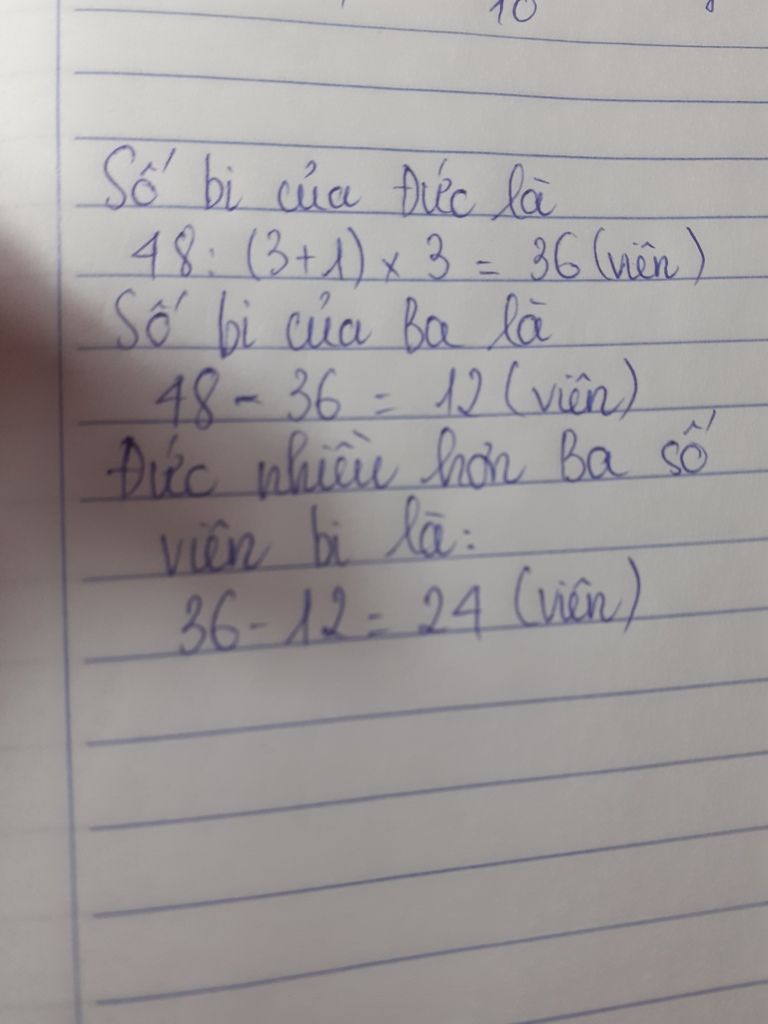 10
Số bi của Đức là
48 : (3+1) x 3 = 36 (viên)
Số bi của Ba là
48 - 36 = 12 (viên)
Đức nhiều hơn Ba số
viên bi là:
36 - 12 = 24 (viên)